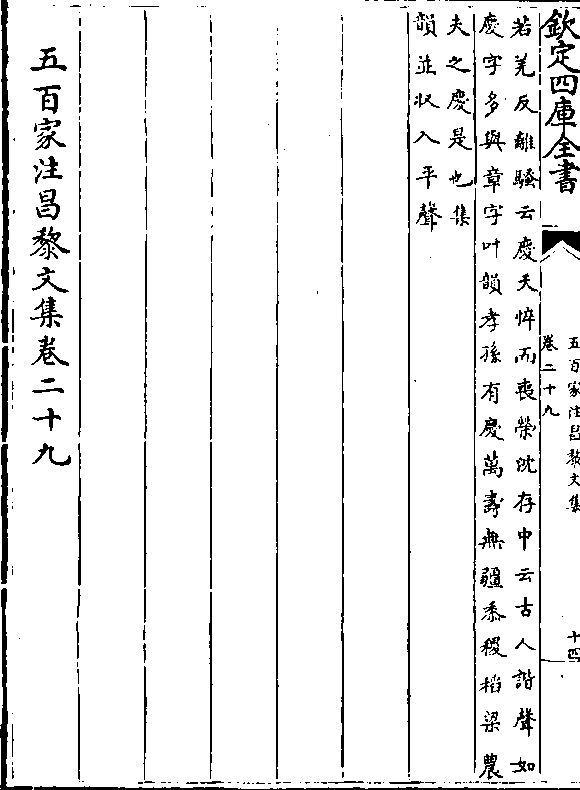 欽定四庫全書
五百家注昌黎文集
卷二十九
十四
若羌反離騷云慶天悴而喪榮沈存中云古人諧聲如
慶字多與章字叶韻孝孫有慶萬壽無疆黍稷稻梁農
夫之慶是也集
韻並收入平聲
五百家注昌黎文集卷二十九